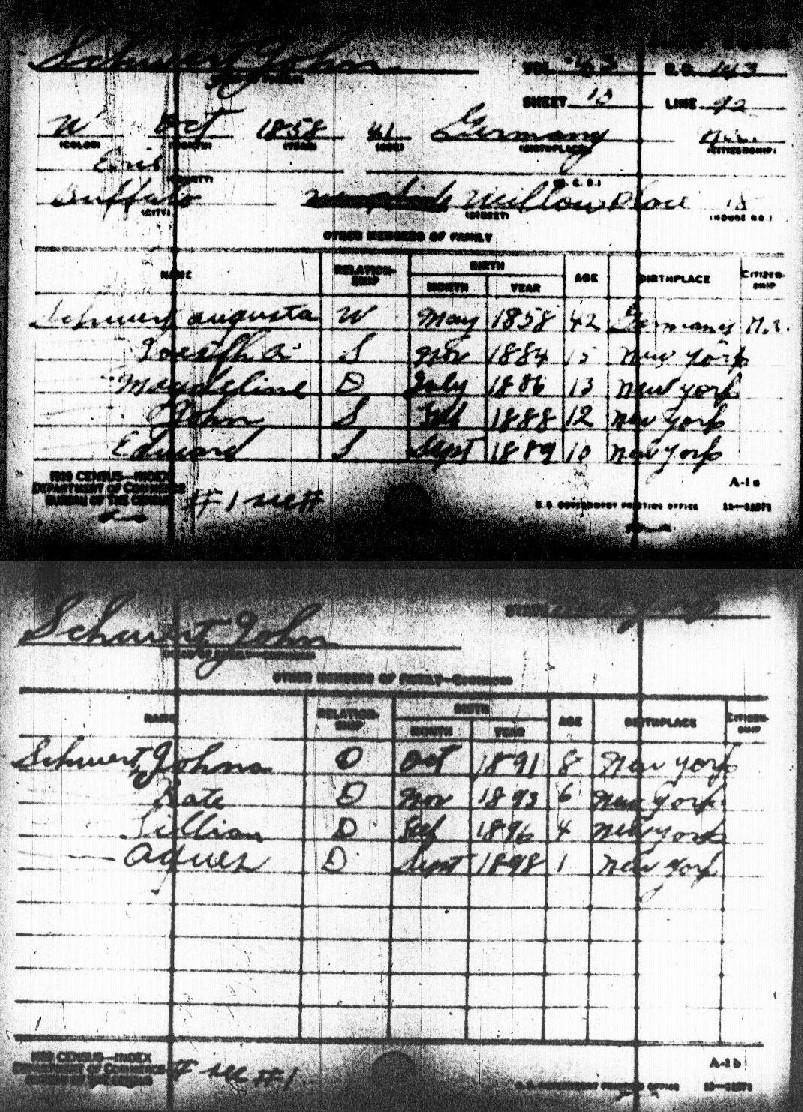 Schwert John
VOL. E.D. 143
SHEET 10 LINE 92
W Oct 1858 41 Germany
(COLOR) (MONTH) (YEAR) (AGE) (BIRTHPLACE) (CITIZENSHIP)
Erie
(COUNTY) (M. C. D.)
Buffalo Willow Place 15
(CITY) (STREET) (HOUSE NO.)
OTHER MEMBERS OF FAMILY
NAME RELATION-SHIP BIRTH AGE BIRTHPLACE CITIZEN-SHIP
MONTH YEAR
Schwert Augusta W May 1858 42 Germany N.R.
Joseph A S Nov 1884 15 New York
Maudeline D July 1886 13 New York
John S Feb 1888 12 New York
Edward S Sept 1889 10 New York
A-1a
1900 CENSUS—INDEX
DEPARTMENT OF COMMERCE
BUREAU OF THE CENSUS
#1 see #
U.S. GOVERNMENT PRINTING OFFICE
Schwert John STATE New York
OTHER MEMBERS OF FAMILY—CONTINUED
NAME RELATION-SHIP BIRTH AGE BIRTHPLACE CITIZEN-SHIP
MONTH YEAR
Schwert Johna D Oct 1891 8 New York
Kate D Nov 1893 6 New York
Lillian D 1896 4 New York
Agnes D Sept 1898 1 New York
A-1b
1900 CENSUS—INDEX
DEPARTMENT OF COMMERCE
BUREAU OF THE CENSUS
# see #1
U.S. GOVERNMENT PRINTING OFFICE